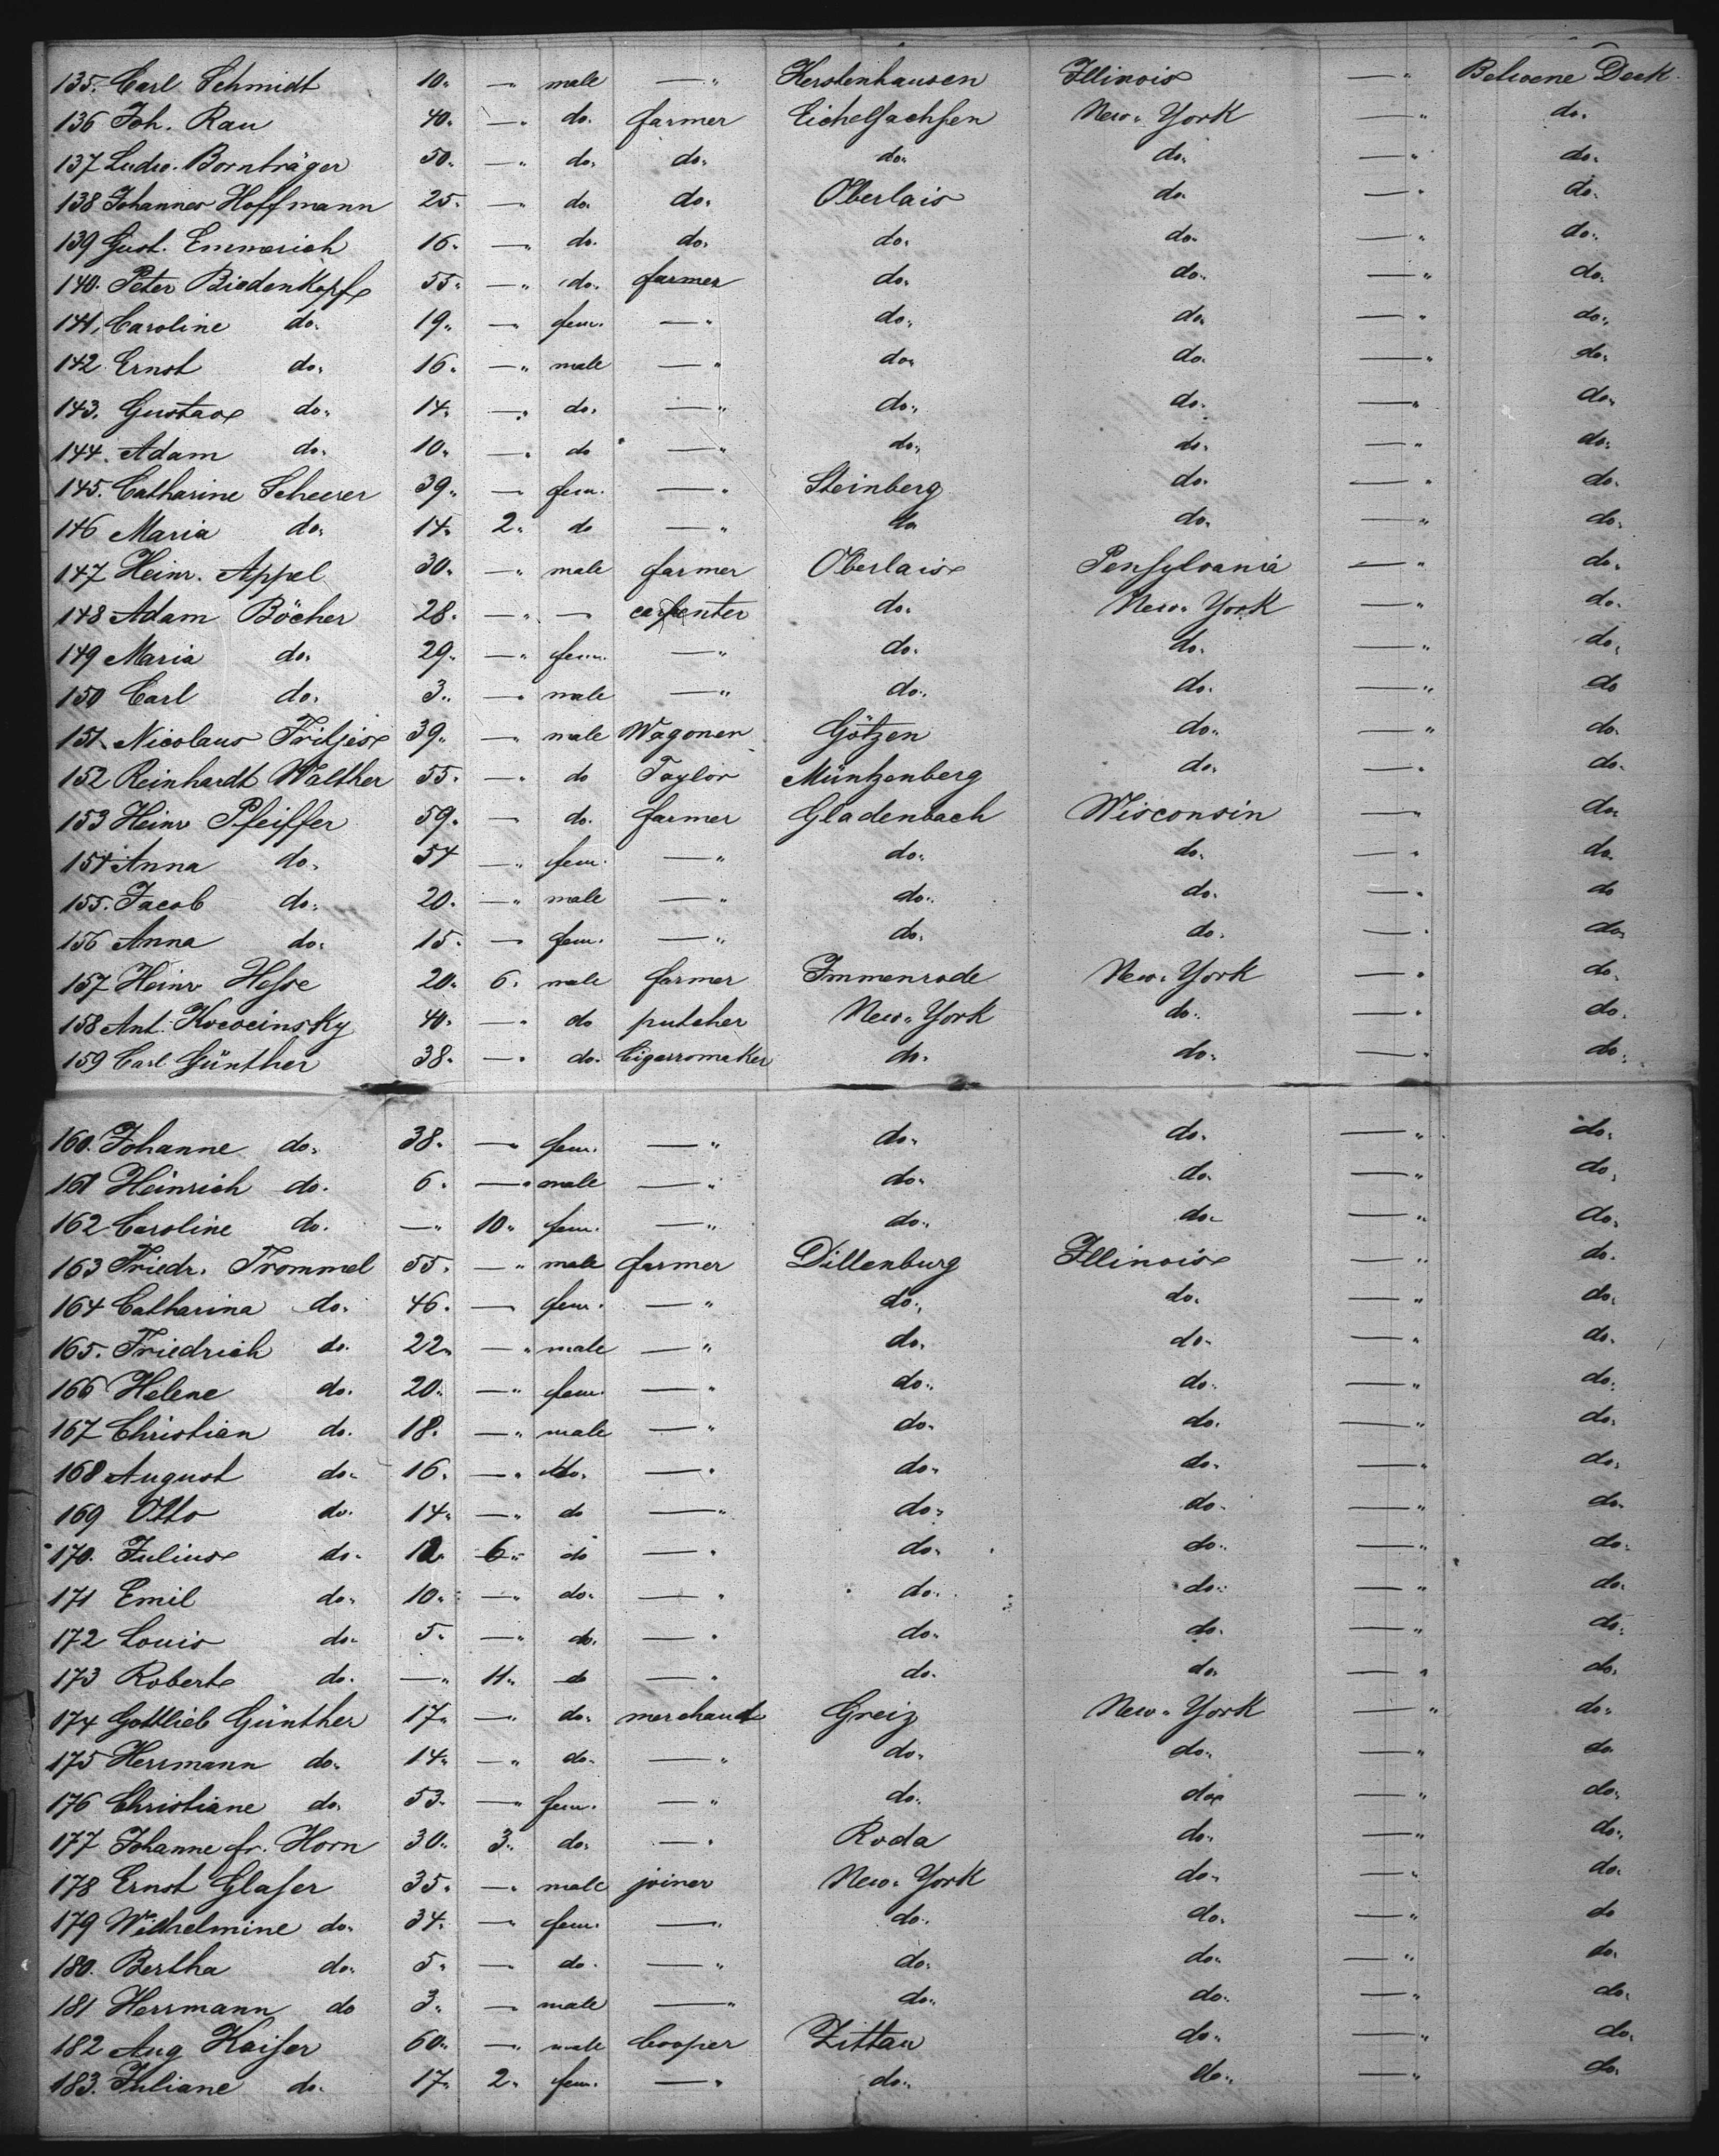 135. Carl Schmidt 10. — male — " Kerstenhausen Illinois — " Betwene Deck
136 Joh. Rau 40. — " do. farmer Eichelsachsen New-York — " do.
137 Ludw. Bornträger 50. — " do. do. do. do. — " do.
138 Johannes Hoffmann 25. — " do. do. Oberlais do. — " do.
139 Gust. Emmerich 16. — " do. do. do. do. — " do.
140. Peter Biedenkopf 55. — " do. farmer do. do. — " do.
141, Caroline do. 19. — " fem. — " do. do. — " do.
142 Ernst do. 16. — " male — " do. do. — " do.
143. Gustav do. 14. — " do. — " do. do. — " do.
144. Adam do. 10. — " do — " do. do. — " do.
145. Catharine Scheerer 39. — " fem. — " Steinberg do. — " do.
146 Maria do. 14. 2. do — " do do. — " do.
147 Heinr. Appel 30. — " male farmer Oberlais Pensylvania — " do.
148 Adam Böcher 28. — " — carpenter do. New-York — " do.
149 Maria do. 29. — " fem. — " do. do. — " do.
150 Carl do. 3. — " male — " do. do. — " do
151. Nicolaus 39. — " male Wagoner Götzen do. — " do.
152 Reinhardt Walther 55. — " do Taylor Müntzenberg do. — " do.
153 Heinr Pfeiffer 59. — " do. farmer Gladenbach Wisconsin — " do.
154 Anna do. 54 — " fem. — " do. do. — " do.
155. Jacob do. 20. — " male — " do. do. — " do
156 Anna do. 15. — " fem. — " do. do. — " do.
157 Heinr Hesse 20. 6. male farmer Immenrode New-York — " do.
158 Ant. 40. — " do putcher New-York do. — " do.
159 Carl Günther 38. — " do. Cigarromaker do. do. — " do.
160. Johanne do. 38. — " fem. — " do. do. — " do.
161 Heinrich do. 6. — " male — " do. do. — " do.
162 Caroline do. — " 10. fem. — " do. do. — " do.
163 Friedr. Trommel 55. — " male farmer Dillenburg Illinois — " do.
164 Catharina do. 46. — " fem. — " do. do. — " do.
165. Friedrich do. 22. — " male — " do. do. — " do.
166 Helene do. 20. — " fem. — " do. do. — " do.
167 Christian do. 18. — " male — " do. do. — " do.
168 August do. 16. — " do. — " do. do. — " do.
169 Otto do. 14. — " do — " do. do. — " do.
170. Julius do. 12. 6. do — " do. do. — " do.
171 Emil do. 10. — " do. — " do. do. — " do.
172 Louis do. 5. — " do. — " do. do. — " do.
173 Robert do. — " 11. do — " do. do. — " do.
174 Gottlieb Günther 17. — " do. merchandt Greiz New-York — " do.
175 Herrmann do. 14. — " do. — " do. do. — " do
176 Christiane do. 53. — " fem. — " do. do. — " do.
177 Johanne fr. Horn 30. 3. do. — " Roda do. — " do.
178 Ernst Glaser 35. — " male joiner New-York do. — " do.
179 Wilhelmine do. 34. — " fem. — " do. do. — " do
180. Bertha do. 5. — " do. — " do. do. — " do.
181 Herrmann do 3. — " male — " do. do. — " do.
182 Aug Kaiser 60. — " male Cooper Zittau do. — " do.
183. Juliane do. 17. 2. fem. — " do. do. — " do.